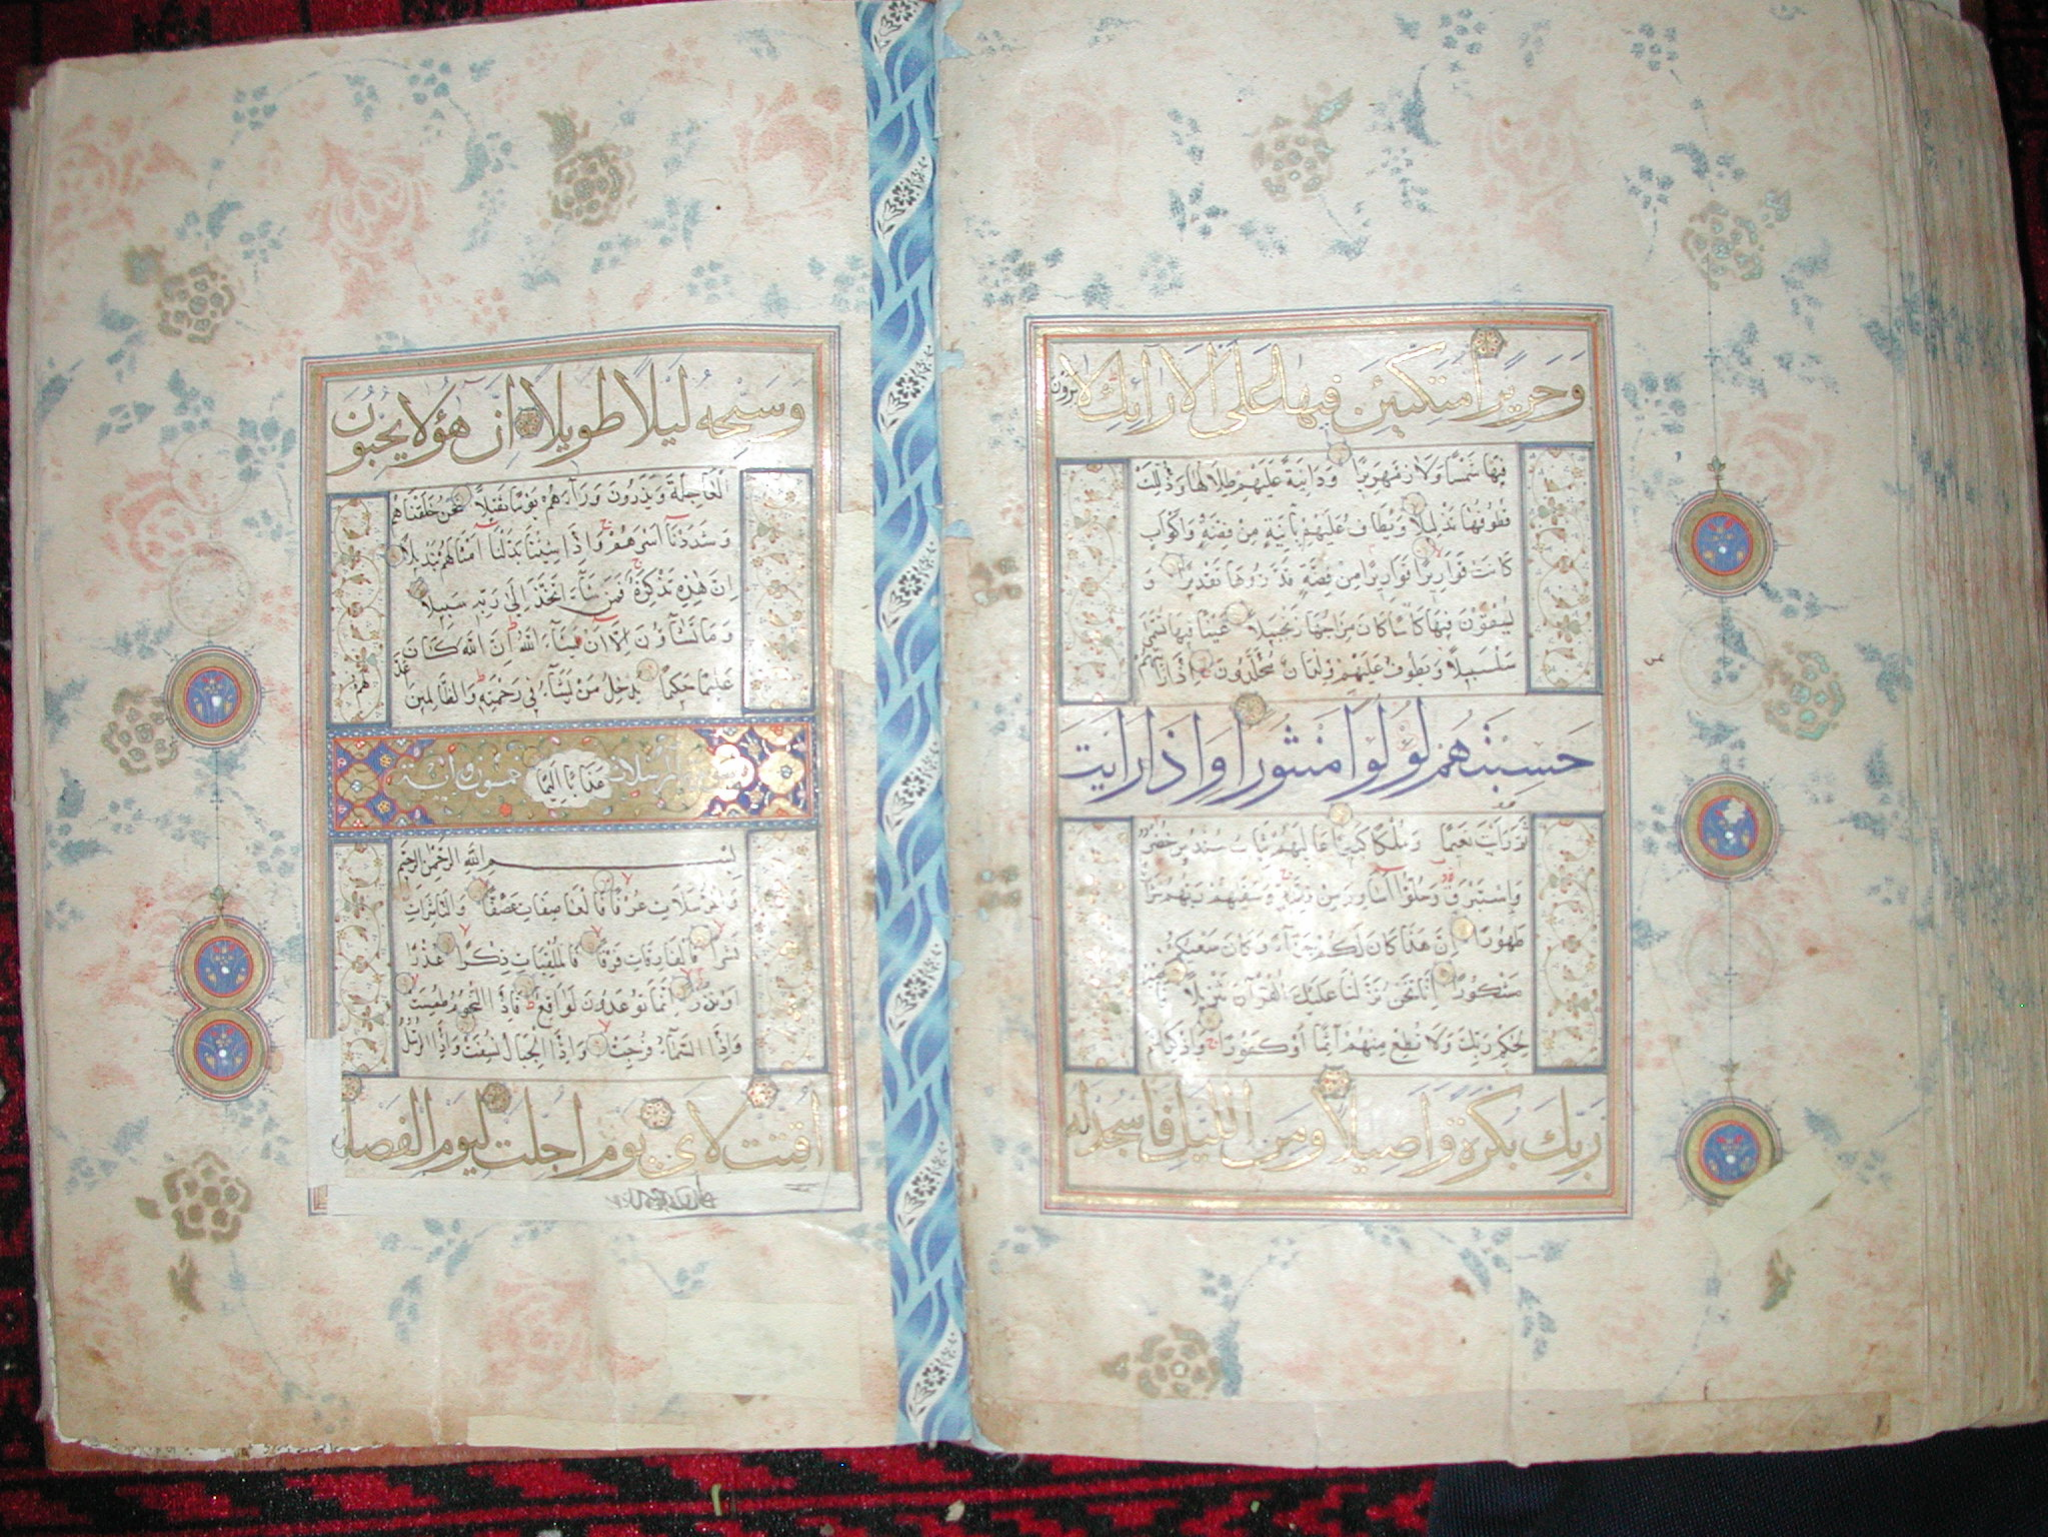 وَحَرِيرًا مُتَّكِئِينَ فِيهَا عَلَى الْأَرَائِكِ لَا يَرَوْنَ
فِيهَا شَمْسًا وَلَا زَمْهَرِيرًا وَدَانِيَةً عَلَيْهِمْ ظِلَالُهَا وَذُلِّلَتْ
قُطُوفُهَا تَذْلِيلًا وَيُطَافُ عَلَيْهِمْ بِآنِيَةٍ مِنْ فِضَّةٍ وَأَكْوَابٍ
كَانَتْ قَوَارِيرَا قَوَارِيرَا مِنْ فِضَّةٍ قَدَّرُوهَا تَقْدِيرًا وَ
يُسْقَوْنَ فِيهَا كَأْسًا كَانَ مِزَاجُهَا زَنْجَبِيلًا عَيْنًا فِيهَا تُسَمَّى
سَلْسَبِيلًا وَيَطُوفُ عَلَيْهِمْ وِلْدَانٌ مُخَلَّدُونَ إِذَا رَأَيْتَهُمْ
حَسِبْتَهُمْ لُؤْلُؤًا مَنْثُورًا وَإِذَا رَأَيْتَ
ثَمَّ رَأَيْتَ نَعِيمًا وَمُلْكًا كَبِيرًا عَالِيَهُمْ ثِيَابُ سُنْدُسٍ خُضْرٌ
وَإِسْتَبْرَقٌ وَحُلُّوا أَسَاوِرَ مِنْ فِضَّةٍ وَسَقَاهُمْ رَبُّهُمْ شَرَابًا
طَهُورًا إِنَّ هَذَا كَانَ لَكُمْ جَزَاءً وَكَانَ سَعْيُكُمْ
مَشْكُورًا إِنَّا نَحْنُ نَزَّلْنَا عَلَيْكَ الْقُرْآنَ تَنْزِيلًا فَاصْبِرْ
لِحُكْمِ رَبِّكَ وَلَا تُطِعْ مِنْهُمْ آثِمًا أَوْ كَفُورًا وَاذْكُرِ اسْمَ
رَبِّكَ بُكْرَةً وَأَصِيلًا وَمِنَ اللَّيْلِ فَاسْجُدْ لَهُ
وَسَبِّحْهُ لَيْلًا طَوِيلًا إِنَّ هَؤُلَاءِ يُحِبُّونَ
الْعَاجِلَةَ وَيَذَرُونَ وَرَاءَهُمْ يَوْمًا ثَقِيلًا نَحْنُ خَلَقْنَاهُمْ
وَشَدَدْنَا أَسْرَهُمْ وَإِذَا شِئْنَا بَدَّلْنَا أَمْثَالَهُمْ تَبْدِيلًا
إِنَّ هَذِهِ تَذْكِرَةٌ فَمَنْ شَاءَ اتَّخَذَ إِلَى رَبِّهِ سَبِيلًا
وَمَا تَشَاؤُنَ إِلَّا أَنْ يَشَاءَ اللَّهُ إِنَّ اللَّهَ كَانَ
عَلِيمًا حَكِيمًا يُدْخِلُ مَنْ يَشَاءُ فِي رَحْمَتِهِ وَالظَّالِمِينَ أَعَدَّ لَهُمْ
عَذَابًا أَلِيمًا
خمسون آية
بِسْمِ اللَّهِ الرَّحْمَنِ الرَّحِيمِ
وَالْمُرْسَلَاتِ عُرْفًا فَالْعَاصِفَاتِ عَصْفًا وَالنَّاشِرَاتِ
نَشْرًا فَالْفَارِقَاتِ فَرْقًا فَالْمُلْقِيَاتِ ذِكْرًا عُذْرًا
أَوْ نُذْرًا إِنَّمَا تُوعَدُونَ لَوَاقِعٌ فَإِذَا النُّجُومُ طُمِسَتْ
وَإِذَا السَّمَاءُ فُرِجَتْ وَإِذَا الْجِبَالُ نُسِفَتْ وَإِذَا الرُّسُلُ
أُقِّتَتْ لِأَيِّ يَوْمٍ أُجِّلَتْ لِيَوْمِ الْفَصْلِ